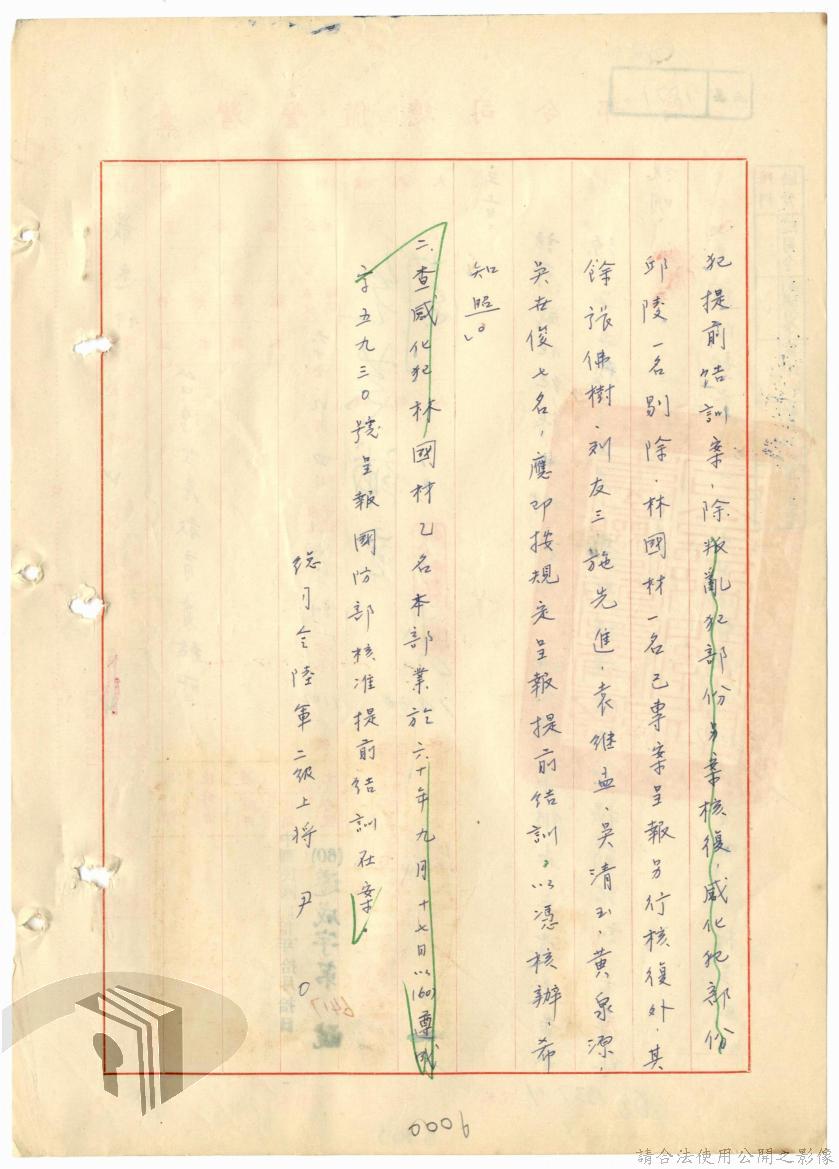 犯提前結訓案，除叛亂犯部份另案核復，感化犯部份
邱陵一名剔除．林國材一名已專案呈報另行核復外．其
餘張佛樹．刘友三施先進．袁继孟、吳清玉、黃泉源．
吳世俊七名，應即按規定呈報提前结訓，以憑核辦，希
知照。」
二、查感化犯林國材乙名本部業於六十年九月十七日以(60)遵成
字五九三〇號呈報國防部核准提前結訓在案。
總司令陸軍二級上將 尹 ○
(60)
6417
號
9000
請合法使用公開之影像